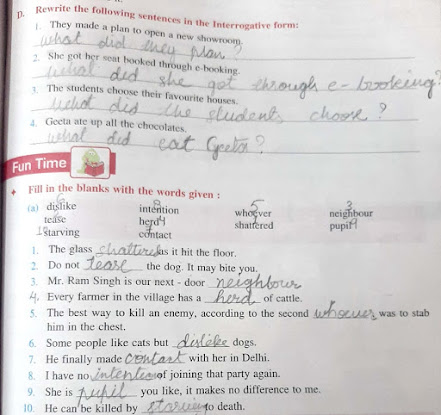 D. Rewrite the following sentences in the Interrogative form:
1. They made a plan to open a new showroom.
what did they plan ?
2. She got her seat booked through e-booking.
what did she got through e-booking?
3. The students choose their favourite houses.
what did the students choose ?
4. Geeta ate up all the chocolates.
what did eat Geeta ?
Fun Time
Fill in the blanks with the words given :
(a) dislike intention whoever neighbour
6 8 5 3
tease herd shattered pupil
4 9
starving contact
10
1. The glass shattered as it hit the floor.
2. Do not tease the dog. It may bite you.
3. Mr. Ram Singh is our next - door neighbour
4. Every farmer in the village has a herd of cattle.
5. The best way to kill an enemy, according to the second whoever was to stab
him in the chest.
6. Some people like cats but dislike dogs.
7. He finally made contact with her in Delhi.
8. I have no intention of joining that party again.
9. She is pupil you like, it makes no difference to me.
10. He can be killed by starving to death.